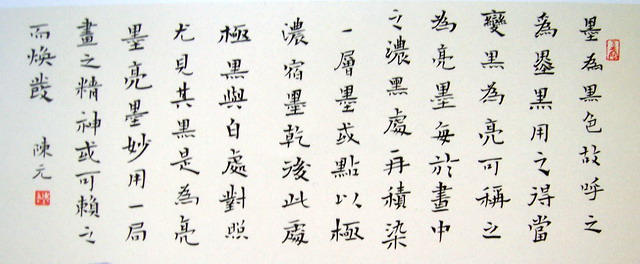 墨為黑色故呼之
為墨黑用之得當
變黑為亮可稱之
為亮墨每於畫中
之濃黑處再積染
一層墨或點以極
濃宿墨乾後此處
極黑與白處對照
尤見其黑是為亮
墨亮墨妙用一局
畫之精神或可賴之
而煥發 陳元